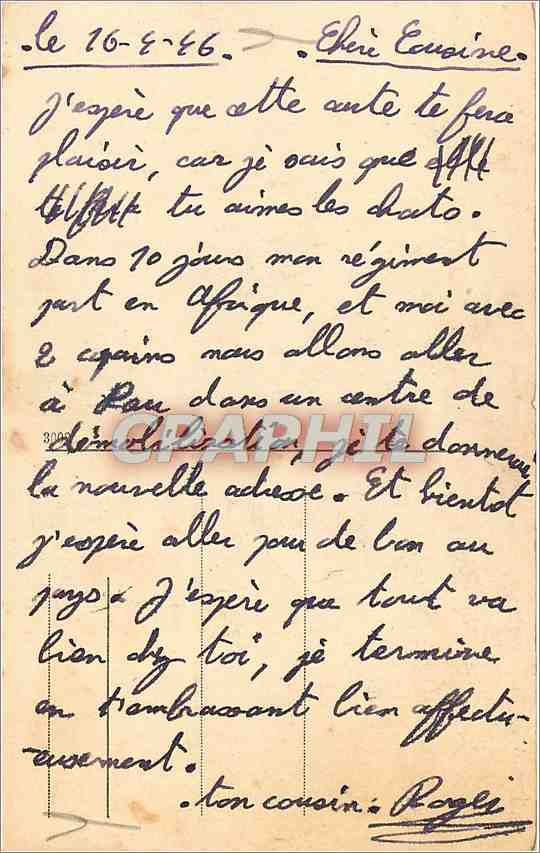 le 16-4-46. . Chère Cousine.
J'espère que cette carte te fera
plaisir, car je sais que
tu aimes les chats.
Dans 10 jours mon régiment
part en Afrique, et moi avec
2 copains nous allons aller
à Pau dans un centre de
3002 démobilisation, je te donnerai
CPAPHIL
la nouvelle adresse. Et bientot
j'espère aller pour de bon au
pays. J'espère que tout va
bien chez toi, je termine
en t'embrassant bien affectu-
-eusement.
. ton cousin.